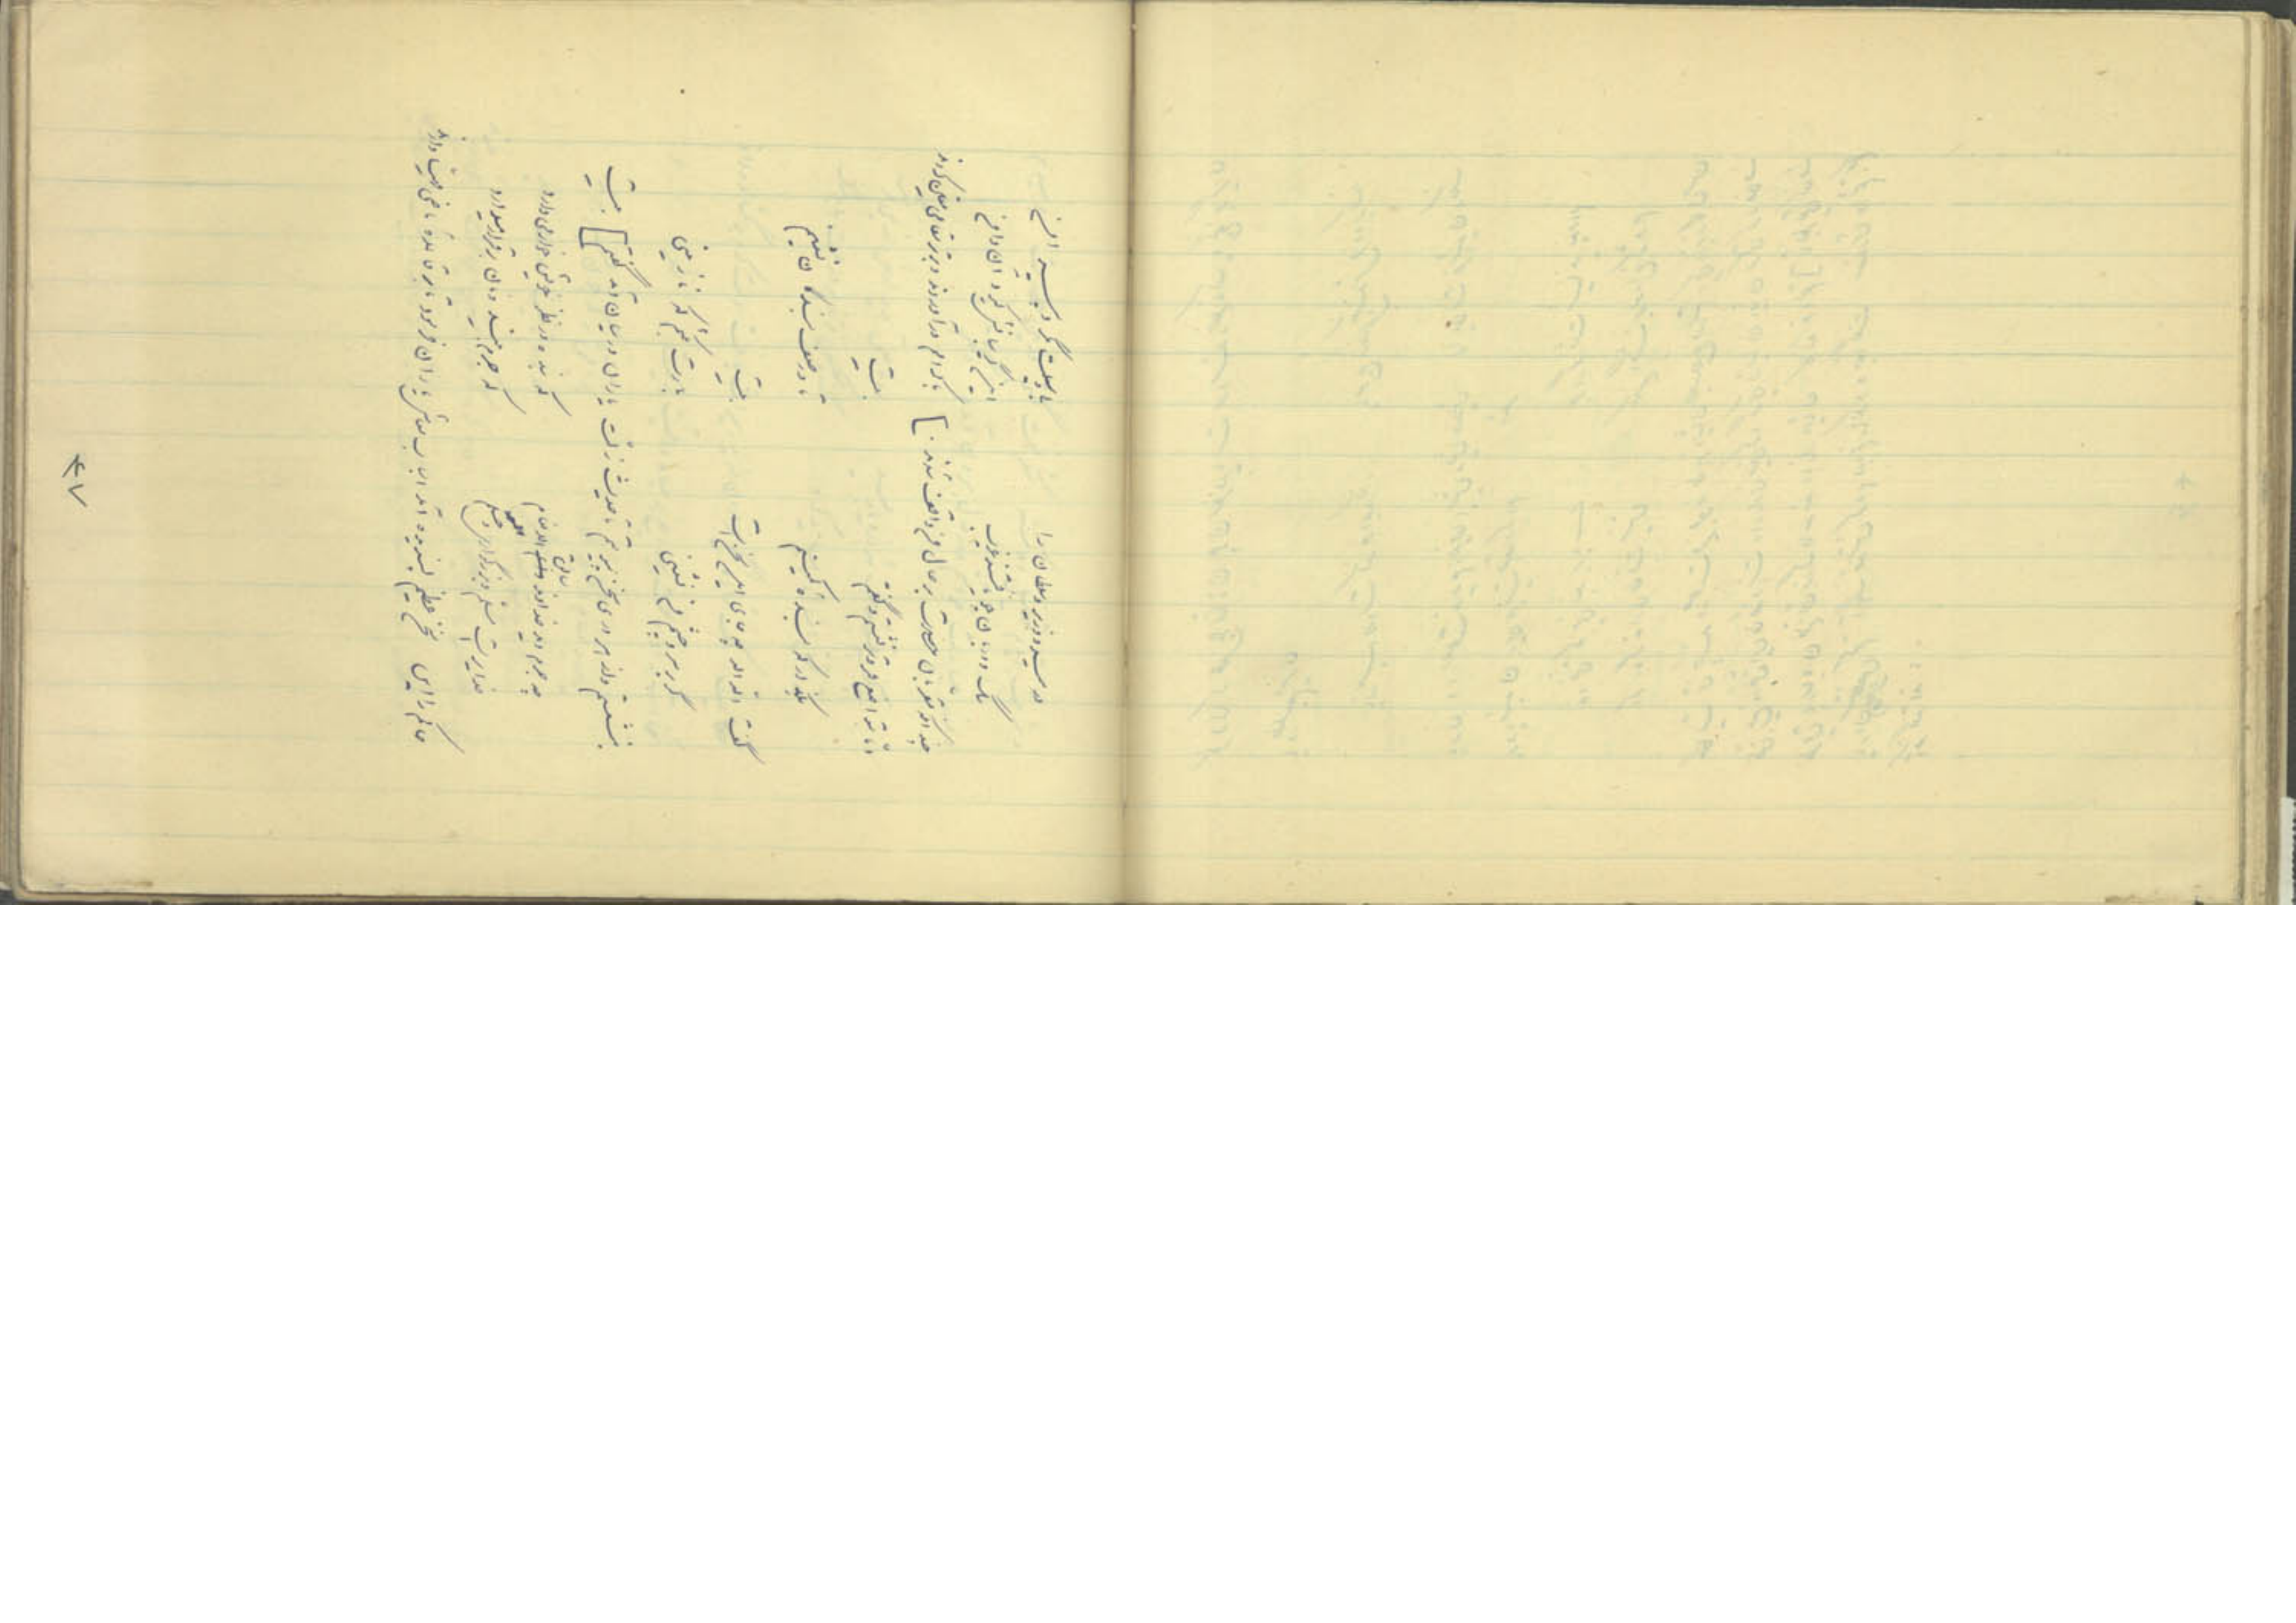 در میر و وزیر و سلطان را بی وسیلت مگرد پیرامن
سگ و دربان چو یافتند غریب این گریبانش گیرد آن دامن
چندانکه مقربان حضرت بر حال من واقف شدند [ باکرام در آوردند و برتر مقامی معین کردند
اما بتواضع فروتر نشستم و گفتم بیت
بگذار که بنده کمینم تا در صف بندگان نشینم
گفت الله الله چه جای این سخنست بیت
گر بر سر و چشم من نشینی نازت بکشم که نازنینی
بنشستم واز هر دری سخن پیوستم تا حدیث زلت یاران در میان آمد گفتم [ بیت
چه جرم دید خداوند سابق الانعام که بنده در نظر خویش خوار میدارد
خدایراست مسلم بزرگواری و حکم که جرم بیند و نان برقرار میدارد
حاکم را این سخن عظیم پسندیده آمد اسباب معاش یاران فرمود تا بر قاعده ماضی مهیا دارند
۴۷